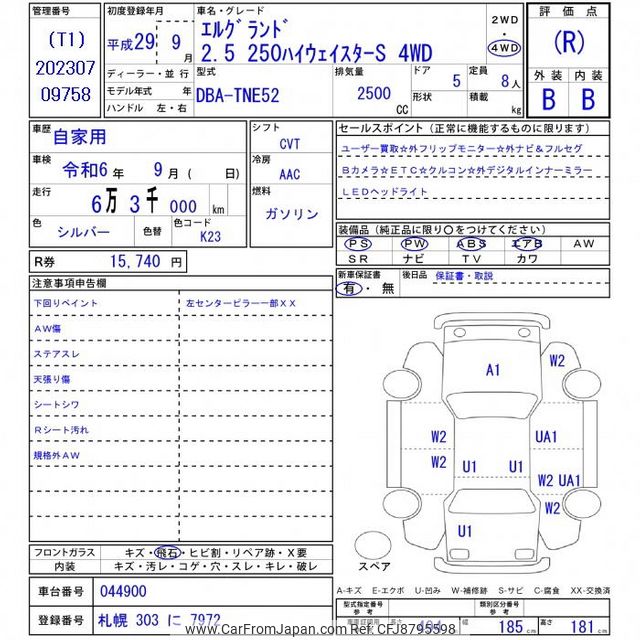 管理番号
(T1)
202307
09758
初度登録年月
平成29年 9月
ディーラー・並行
モデル年式 年
ハンドル 左・右
車名・グレード
エルグランド
2.5 250ハイウェイスターS 4WD
2WD
・
4WD
型式
DBA-TNE52
排気量
2500
CC
ドア 5
形状
定員 8人
積載 kg
評価点
(R)
外装 内装
B B
車歴
自家用
車検
令和6年 9月 ( 日)
走行
6万3千000 km
色
シルバー
色替
色コード
K23
シフト
CVT
冷房
AAC
燃料
ガソリン
セールスポイント (正常に機能するものに限ります)
ユーザー買取☆外フリップモニター☆外ナビ&フルセグ
Bカメラ☆ETC☆クルコン☆外デジタルインナーミラー
LEDヘッドライト
装備品 (純正品に限り〇をつけてください)
PS PW ABS エアB AW
SR ナビ TV カワ
R券 15,740 円
新車保証書
有・無
後日品 保証書・取説
注意事項申告欄
下回りペイント 左センターピラー一部XX
AW傷
ステアスレ
天張り傷
シートシワ
Rシート汚れ
規格外AW
A1
W2
W2
UA1
W2
U1
U1
W2
UA1
W2
U1
スペア
フロントガラス キズ・飛石・ヒビ割・リペア跡・X要
内装 キズ・汚レ・コゲ・穴・スレ・キレ・破レ
A-キズ E-エクボ U-凹み W-補修跡 S-サビ C-腐食 XX-交換済
車台番号 044900
型式指定番号
類別区分番号
登録番号 札幌 303 に 7972
185 cm
高さ 181 cm
www.CarFromJapan.com Ref:CFJ8795598